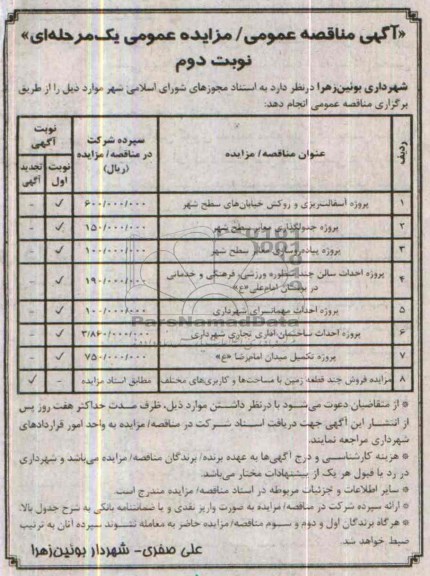 «آگهی مناقصه عمومی/ مزایده عمومی یک‌مرحله‌ای»
نوبت دوم
شهرداری بوئین‌زهرا درنظر دارد به استناد مجوزهای شورای اسلامی شهر موارد ذیل را از طریق
برگزاری مناقصه عمومی انجام دهد:
ردیف عنوان مناقصه/ مزایده سپرده شرکت در مناقصه/ مزایده (ریال) نوبت آگهی
نوبت اول تجدید آگهی
۱ پروژه آسفالت‌ریزی و روکش خیابان‌های سطح شهر ۶۰۰/۰۰۰/۰۰۰ ✓ -
۲ پروژه جدولگذاری معابر سطح شهر ۱۵۰/۰۰۰/۰۰۰ ✓ -
۳ پروژه پیاده‌روسازی معابر سطح شهر ۱۰۰/۰۰۰/۰۰۰ ✓ -
۴ پروژه احداث سالن چند منظوره ورزشی، فرهنگی و خدماتی
در بوستان امام‌علی«ع» ۱۹۰/۰۰۰/۰۰۰ ✓ -
۵ پروژه احداث مهمانسرای شهرداری ۱۰۰/۰۰۰/۰۰۰ ✓ -
۶ پروژه احداث ساختمان اداری تجاری شهرداری ۳/۸۶۰/۰۰۰/۰۰۰ ✓ -
۷ پروژه تکمیل میدان امام‌رضا «ع» ۷۵۰/۰۰۰/۰۰۰ ✓ -
۸ مزایده فروش چند قطعه زمین با مساحت‌ها و کاربری‌های مختلف مطابق اسناد مزایده - ✓
ParsNamadData
* از متقاضیان دعوت می‌شود با درنظر داشتن موارد ذیل، ظرف مدت حداکثر هفت روز پس
از انتشار این آگهی جهت دریافت اسناد شرکت در مناقصه/ مزایده به واحد امور قراردادهای
شهرداری مراجعه نمایند.
* هزینه کارشناسی و درج آگهی‌ها به عهده برنده/ برندگان مناقصه/ مزایده می‌باشد و شهرداری
در رد یا قبول هر یک از پیشنهادات مختار می‌باشد.
* سایر اطلاعات و جزئیات مربوطه در اسناد مناقصه/ مزایده مندرج است.
* ارائه سپرده شرکت در مناقصه/ مزایده به صورت واریز نقدی و یا ضمانتنامه بانکی به شرح جدول بالا.
* هرگاه برندگان اول و دوم و سوم مناقصه/ مزایده حاضر به معامله نشوند سپرده آنان به ترتیب
ضبط خواهد شد.
علی صفری- شهردار بوئین‌زهرا